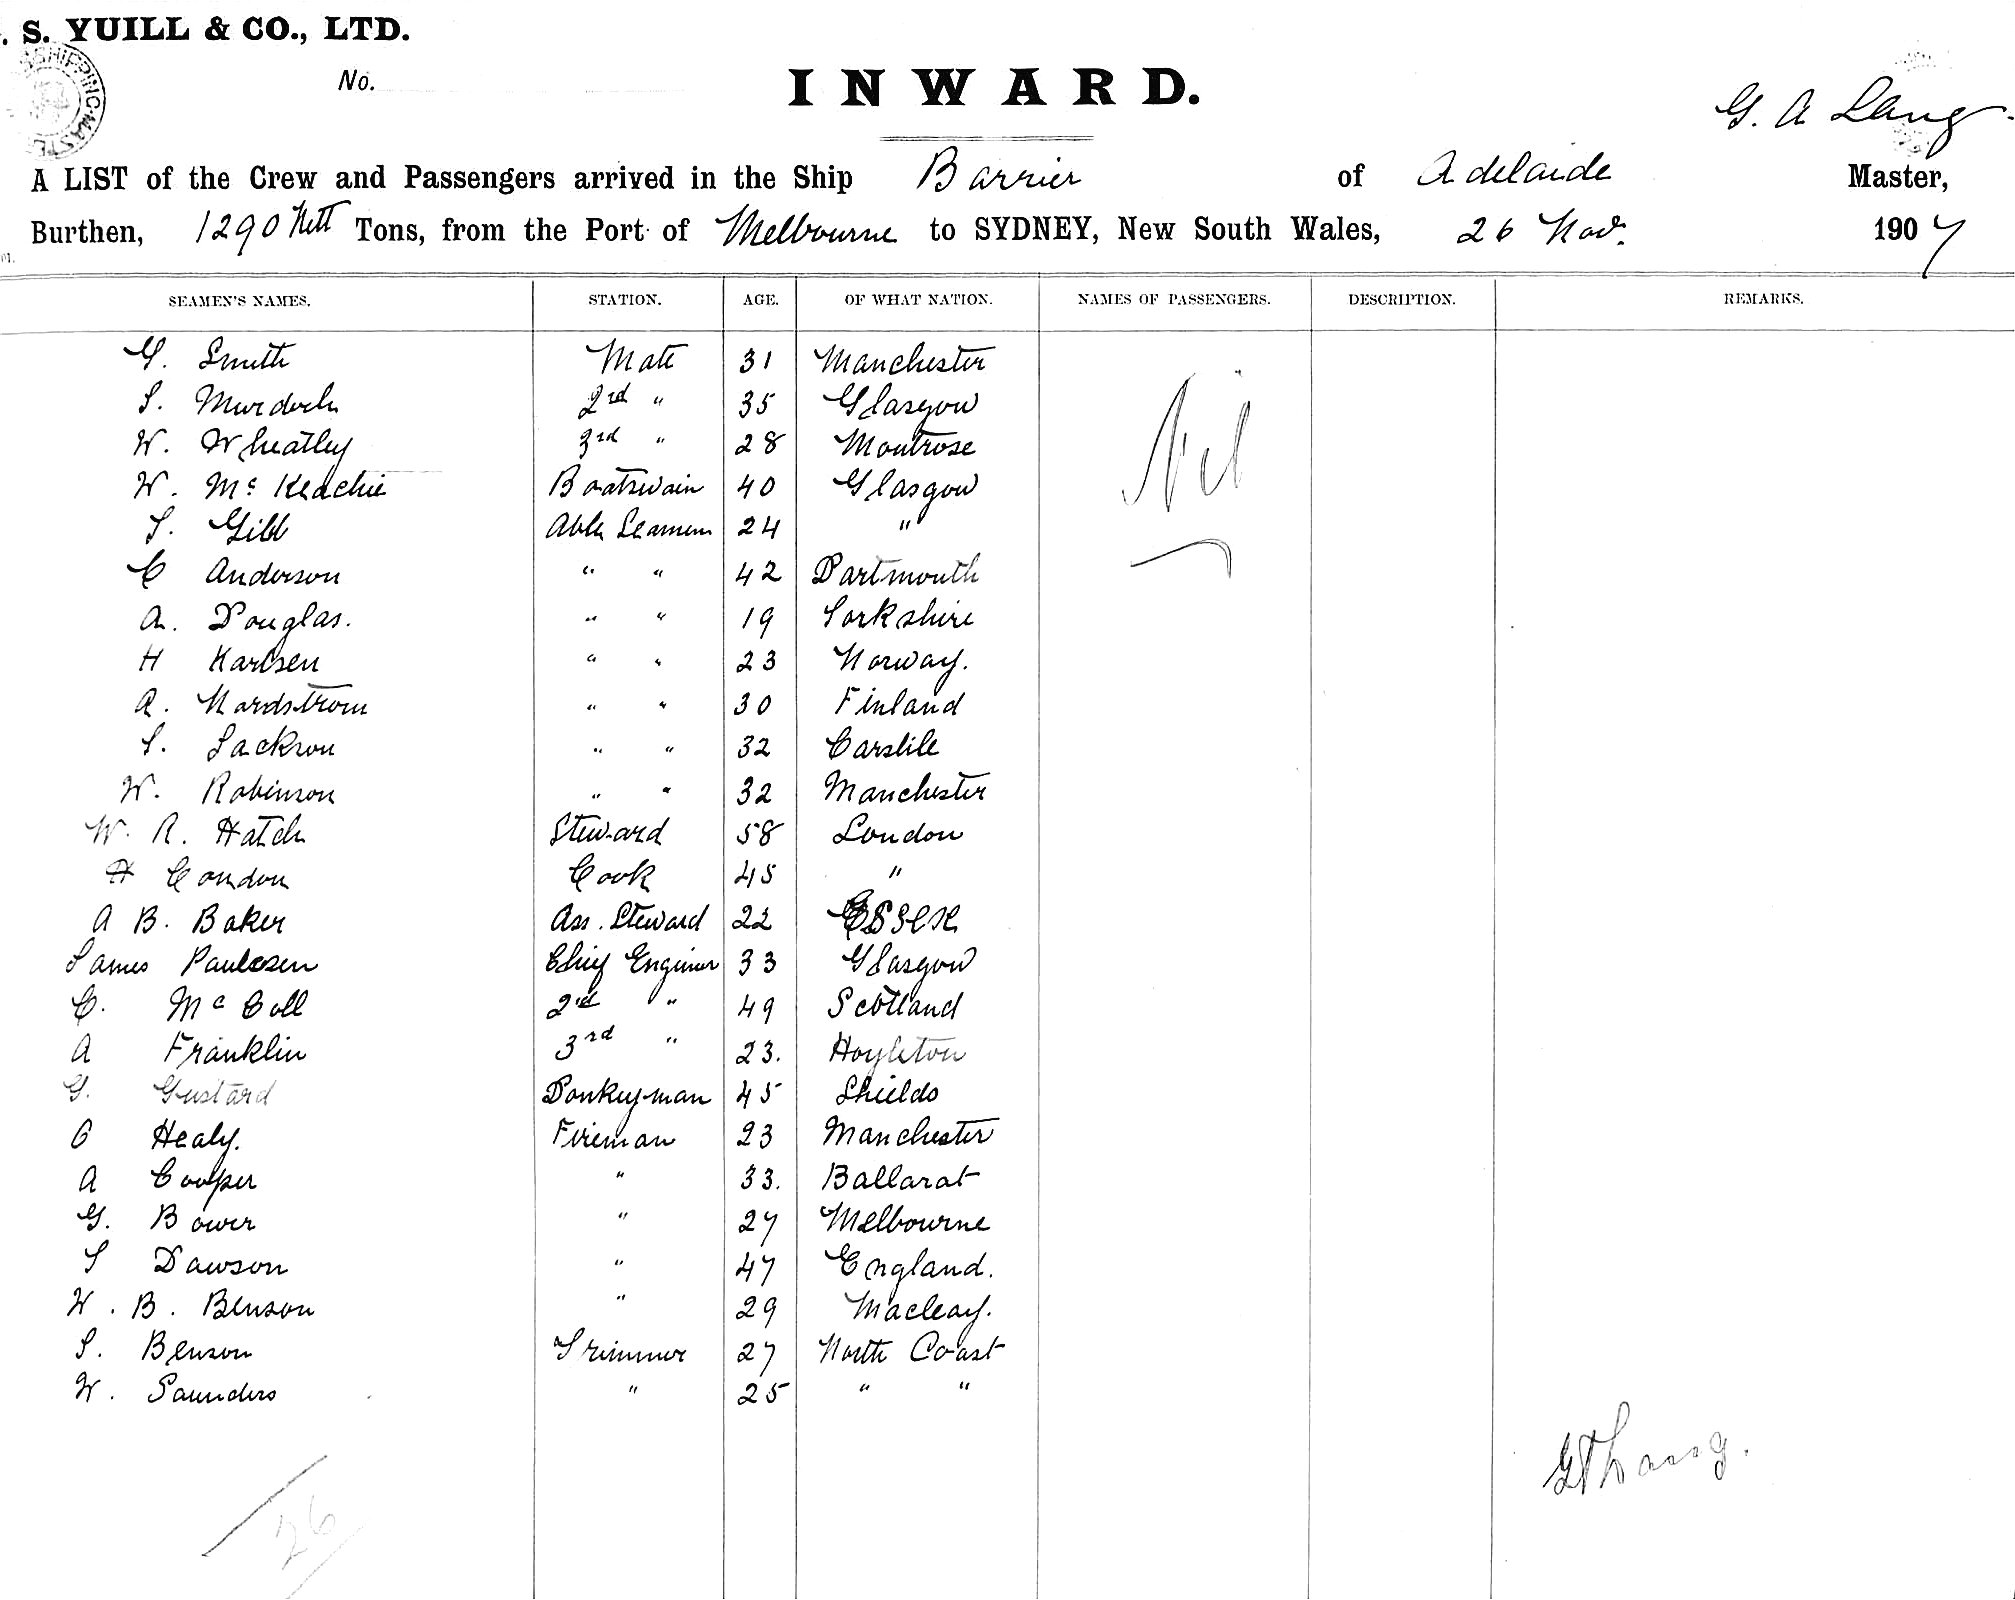 . S. YUILL & CO., LTD.
SHIPPING MASTER
No.
INWARD.
G. A Lang
A LIST of the Crew and Passengers arrived in the Ship Barrier of Adelaide Master,
Burthen, 1290 Nett Tons, from the Port of Melbourne to SYDNEY, New South Wales, 26 Nov. 1907
SEAMEN'S NAMES. STATION. AGE. OF WHAT NATION. NAMES OF PASSENGERS. DESCRIPTION. REMARKS.
G. Smith Mate 31 Manchester
J. Murdoch 2nd " 35 Glasgow
W. Wheatley 3rd " 28 Montrose
W. Mc Keachie Boatswain 40 Glasgow
Nil
J. Gibb Able Seamen 24 "
C Anderson " " 42 Dartmouth
A. Douglas. " " 19 Yorkshire
H Karlsen " " 23 Norway.
A. Nordstrom " " 30 Finland
J. Jackson " " 32 Carslile
W. Robinson " " 32 Manchester
W. R. Hatch Steward 58 London
H Condon Cook 45 "
A B. Baker Ass. Steward 22 Essex
James Paulesen Chief Enginer 33 Glasgow
C. Mc Coll 2nd " 49 Scotland
A Franklin 3rd " 23. Hoyleton
G. Gustard Donkeyman 45 Shields
O Healy. Fireman 23 Manchester
A Cooper " 33. Ballarat
G. Bower " 27 Melbourne
J Dawson " 47 England.
W. B. Benson " 29 Macleay.
J. Benson Trimmer 27 North Coast
W. Saunders " 25 " "
G A Lang.
26